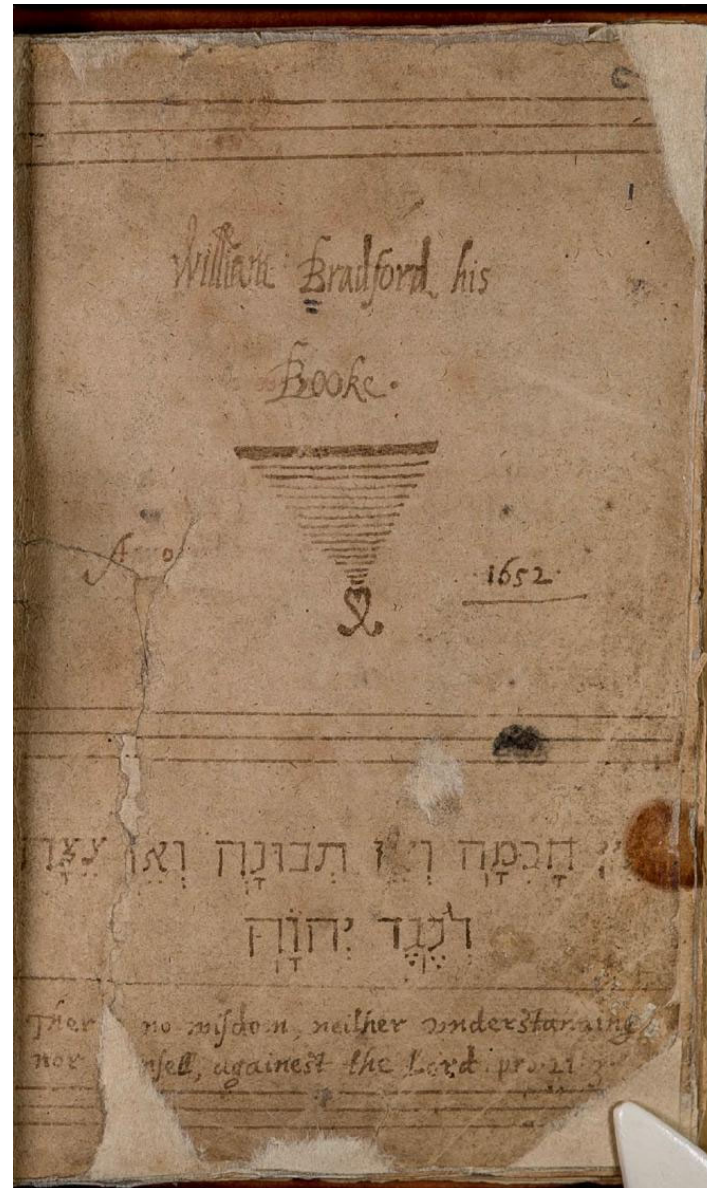 William Bradford his
Booke.
Anno 1652
חָכְמָה וְאֵין תְבוּנָה וְאֵין עֵצָה
לְנֶגֶד יְהוָֹה
no wisdom, neither understanding,
nor againest the Lord. pro. 21